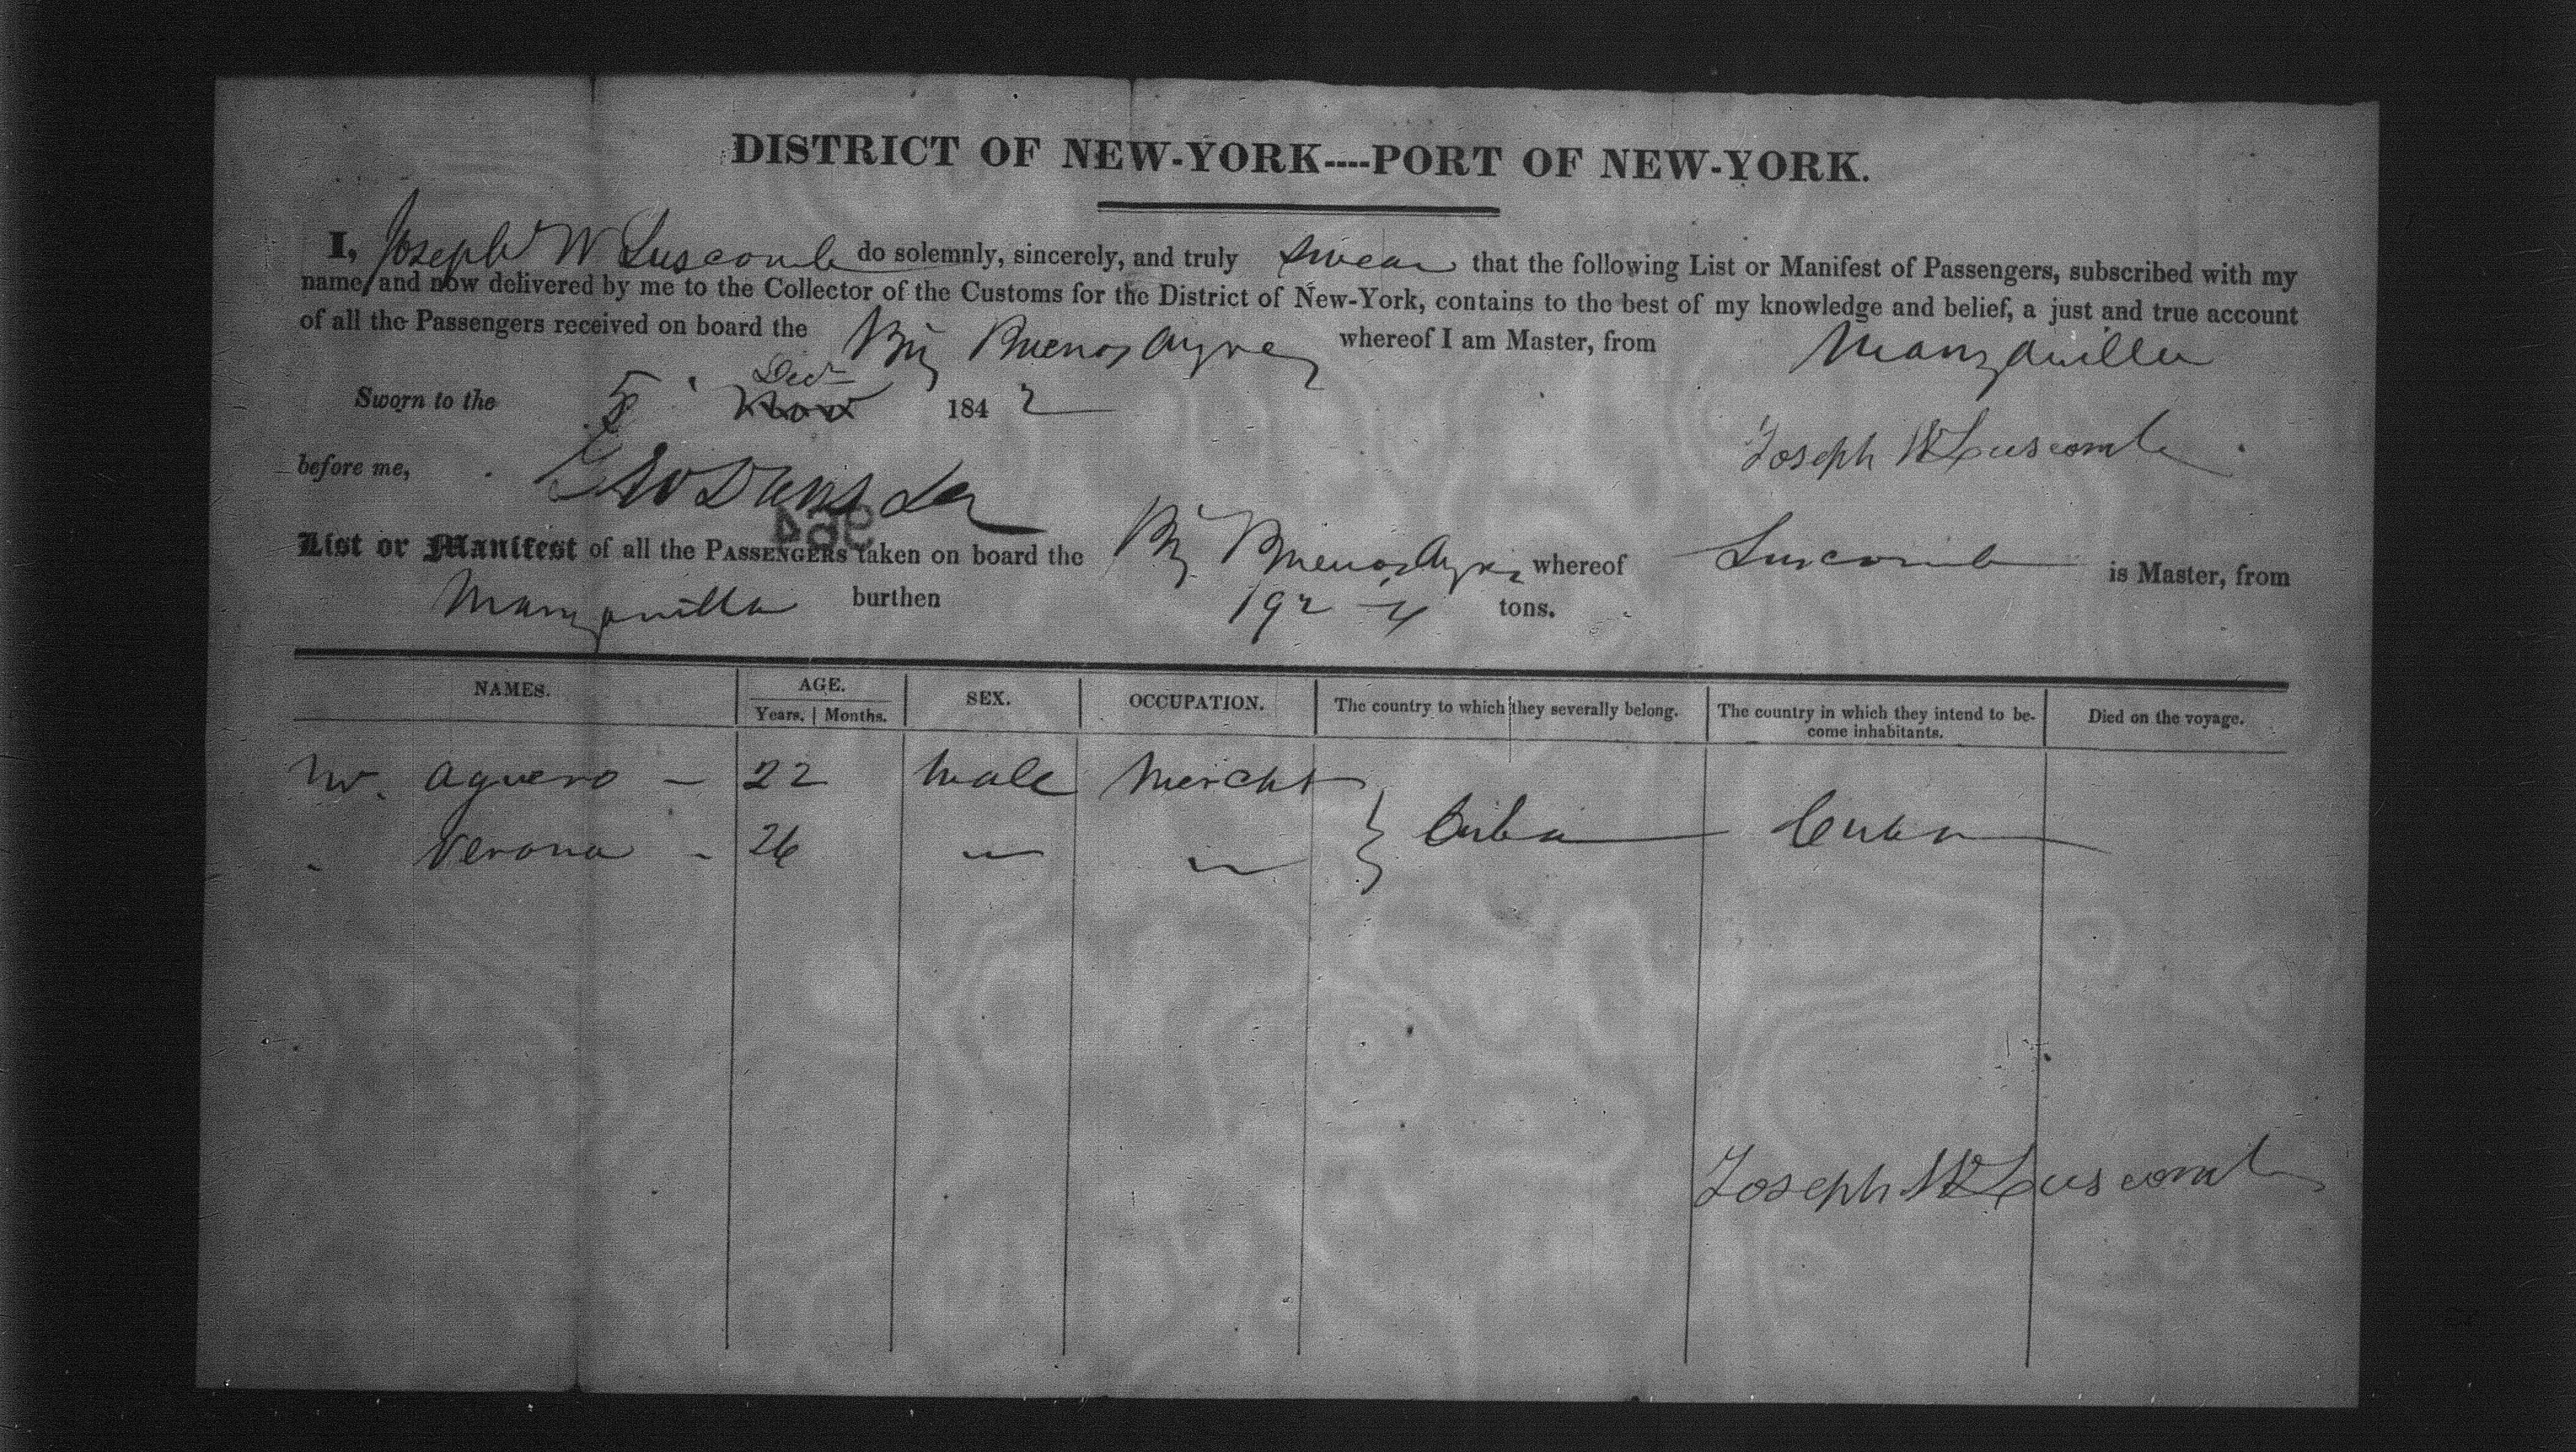 DISTRICT OF NEW-YORK----PORT OF NEW-YORK.
I, Joseph W Luscomb do solemnly, sincerely, and truly swear that the following List or Manifest of Passengers, subscribed with my
name, and now delivered by me to the Collector of the Customs for the District of New-York, contains to the best of my knowledge and belief, a just and true account
of all the Passengers received on board the Brig Buenos Ayres whereof I am Master, from Manzanilla
Sworn to the 5 Nov Dec 1842
Joseph W Luscomb
before me,
List or Manifest of all the PASSENGERS taken on board the Brig Buenos Ayres whereof Luscomb is Master, from
Manzanilla burthen 192 tons.
NAMES. AGE. Years. Months. SEX. OCCUPATION. The country to which they severally belong. The country in which they intend to become inhabitants. Died on the voyage.
Mr. Aguero - 22 Male Mercht
" Verona - 26 " " } Cuba Cuba
Joseph W Luscomb